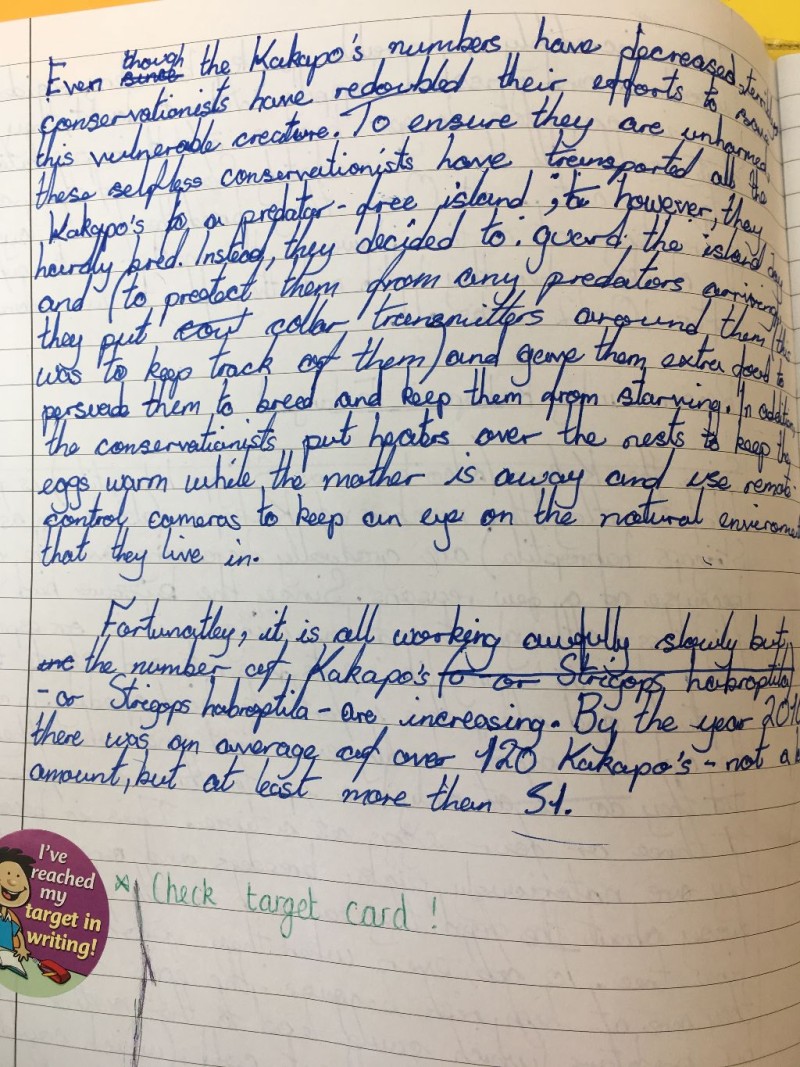 though
Even since the Kakapo's numbers have decreased terribly
conservationists have redoubled their efforts to save
this vulnerable creature. To ensure they are unharmed,
these selfless conservationists have transported all the
Kakapo's to a predator-free island; to however, they
hardly bred. Instead, they decided to guard the island day
and (to protect them from any predators arriving)
they put cow collar transmitters around them (this
was to keep track of them) and gave them extra food to
persuade them to breed and keep them from starving. In addition,
the conservationists put heaters over the nests to keep the
eggs warm while the mother is away and use remote
control cameras to keep an eye on the natural enviroment
that they live in.
Fortunatley, it is all working awfully slowly but,
the number of Kakapo's fo or Strigops habroptila
-or Strigops habroptila - are increasing. By the year
there was an average of over 120 Kakapo's - not a
amount, but at least more than 51.
I've
reached
my
target in
writing!
Check target card!